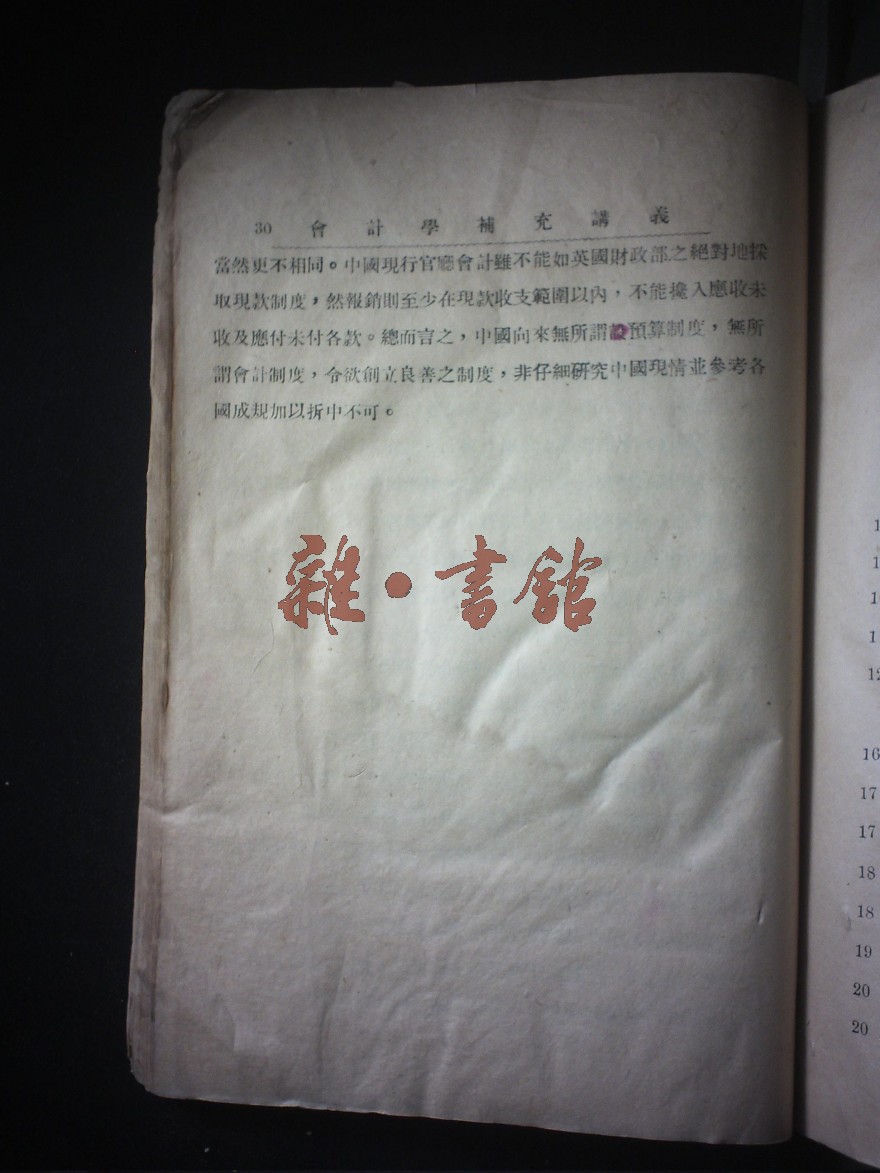 30 會計學補充講義
當然更不相同。中國現行官廳會計雖不能如英國財政部之絕對地採
取現款制度，然報銷則至少在現款收支範圍以內，不能攙入應收未
收及應付未付各款。總而言之，中國向來無所謂預算制度，無所
謂會計制度，令欲創立良善之制度，非仔細研究中國現情並參考各
國成規加以折中不可。
雜·書館
16
17
17
18
18
19
20
20